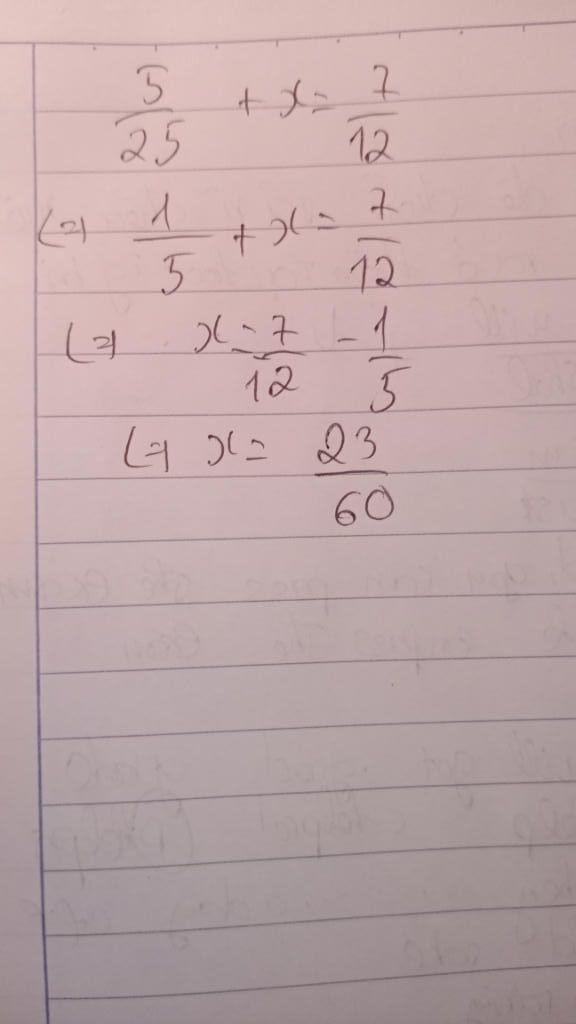 5/25 + x = 7/12
(=) 1/5 + x = 7/12
(=) x = 7/12 - 1/5
(=) x = 23/60